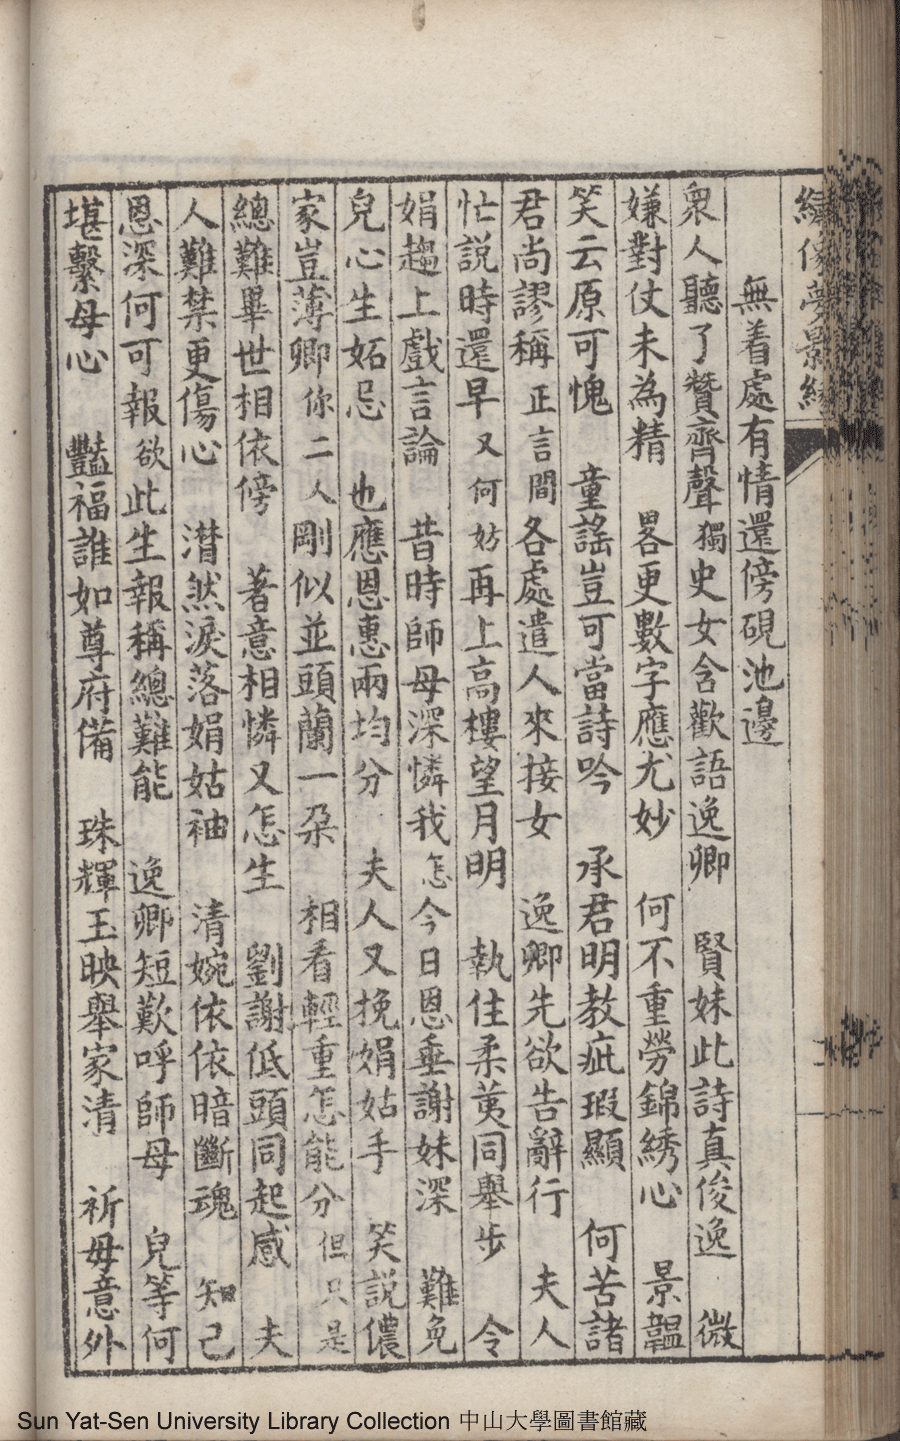 繡像夢影緣
無着處有情還傍硯池邊
衆人聽了贊齊聲獨史女含歡語逸卿　賢妹此詩真俊逸　微
嫌對仗未為精　畧更數字應尤妙　何不重勞錦綉心　景韞
笑云原可愧　童謠豈可當詩吟　承君明教疵瑕顯　何苦諸
君尚謬稱正言間各處遣人來接女　逸卿先欲告辭行　夫人
忙説時還早又何妨再上高樓望月明　執住柔荑同舉步　令
娟趨上戲言論　昔時師母深憐我怎今日恩垂謝妹深　難免
兒心生妬忌　也應恩惠兩均分　夫人又挽娟姑手　笑説儂
家豈薄卿你二人剛似並頭蘭一朶　相看輕重怎能分但只是
總難畢世相依傍　著意相憐又怎生　劉謝低頭同起感　夫
人難禁更傷心　潸然淚落娟姑袖　清婉依依暗斷魂　知己
恩深何可報欲此生報稱總難能　逸卿短歎呼師母　兒等何
堪繫母心　豔福誰如尊府備　珠輝玉映舉家清　祈毋意外
Sun Yat-Sen University Library Collection 中山大學圖書館藏